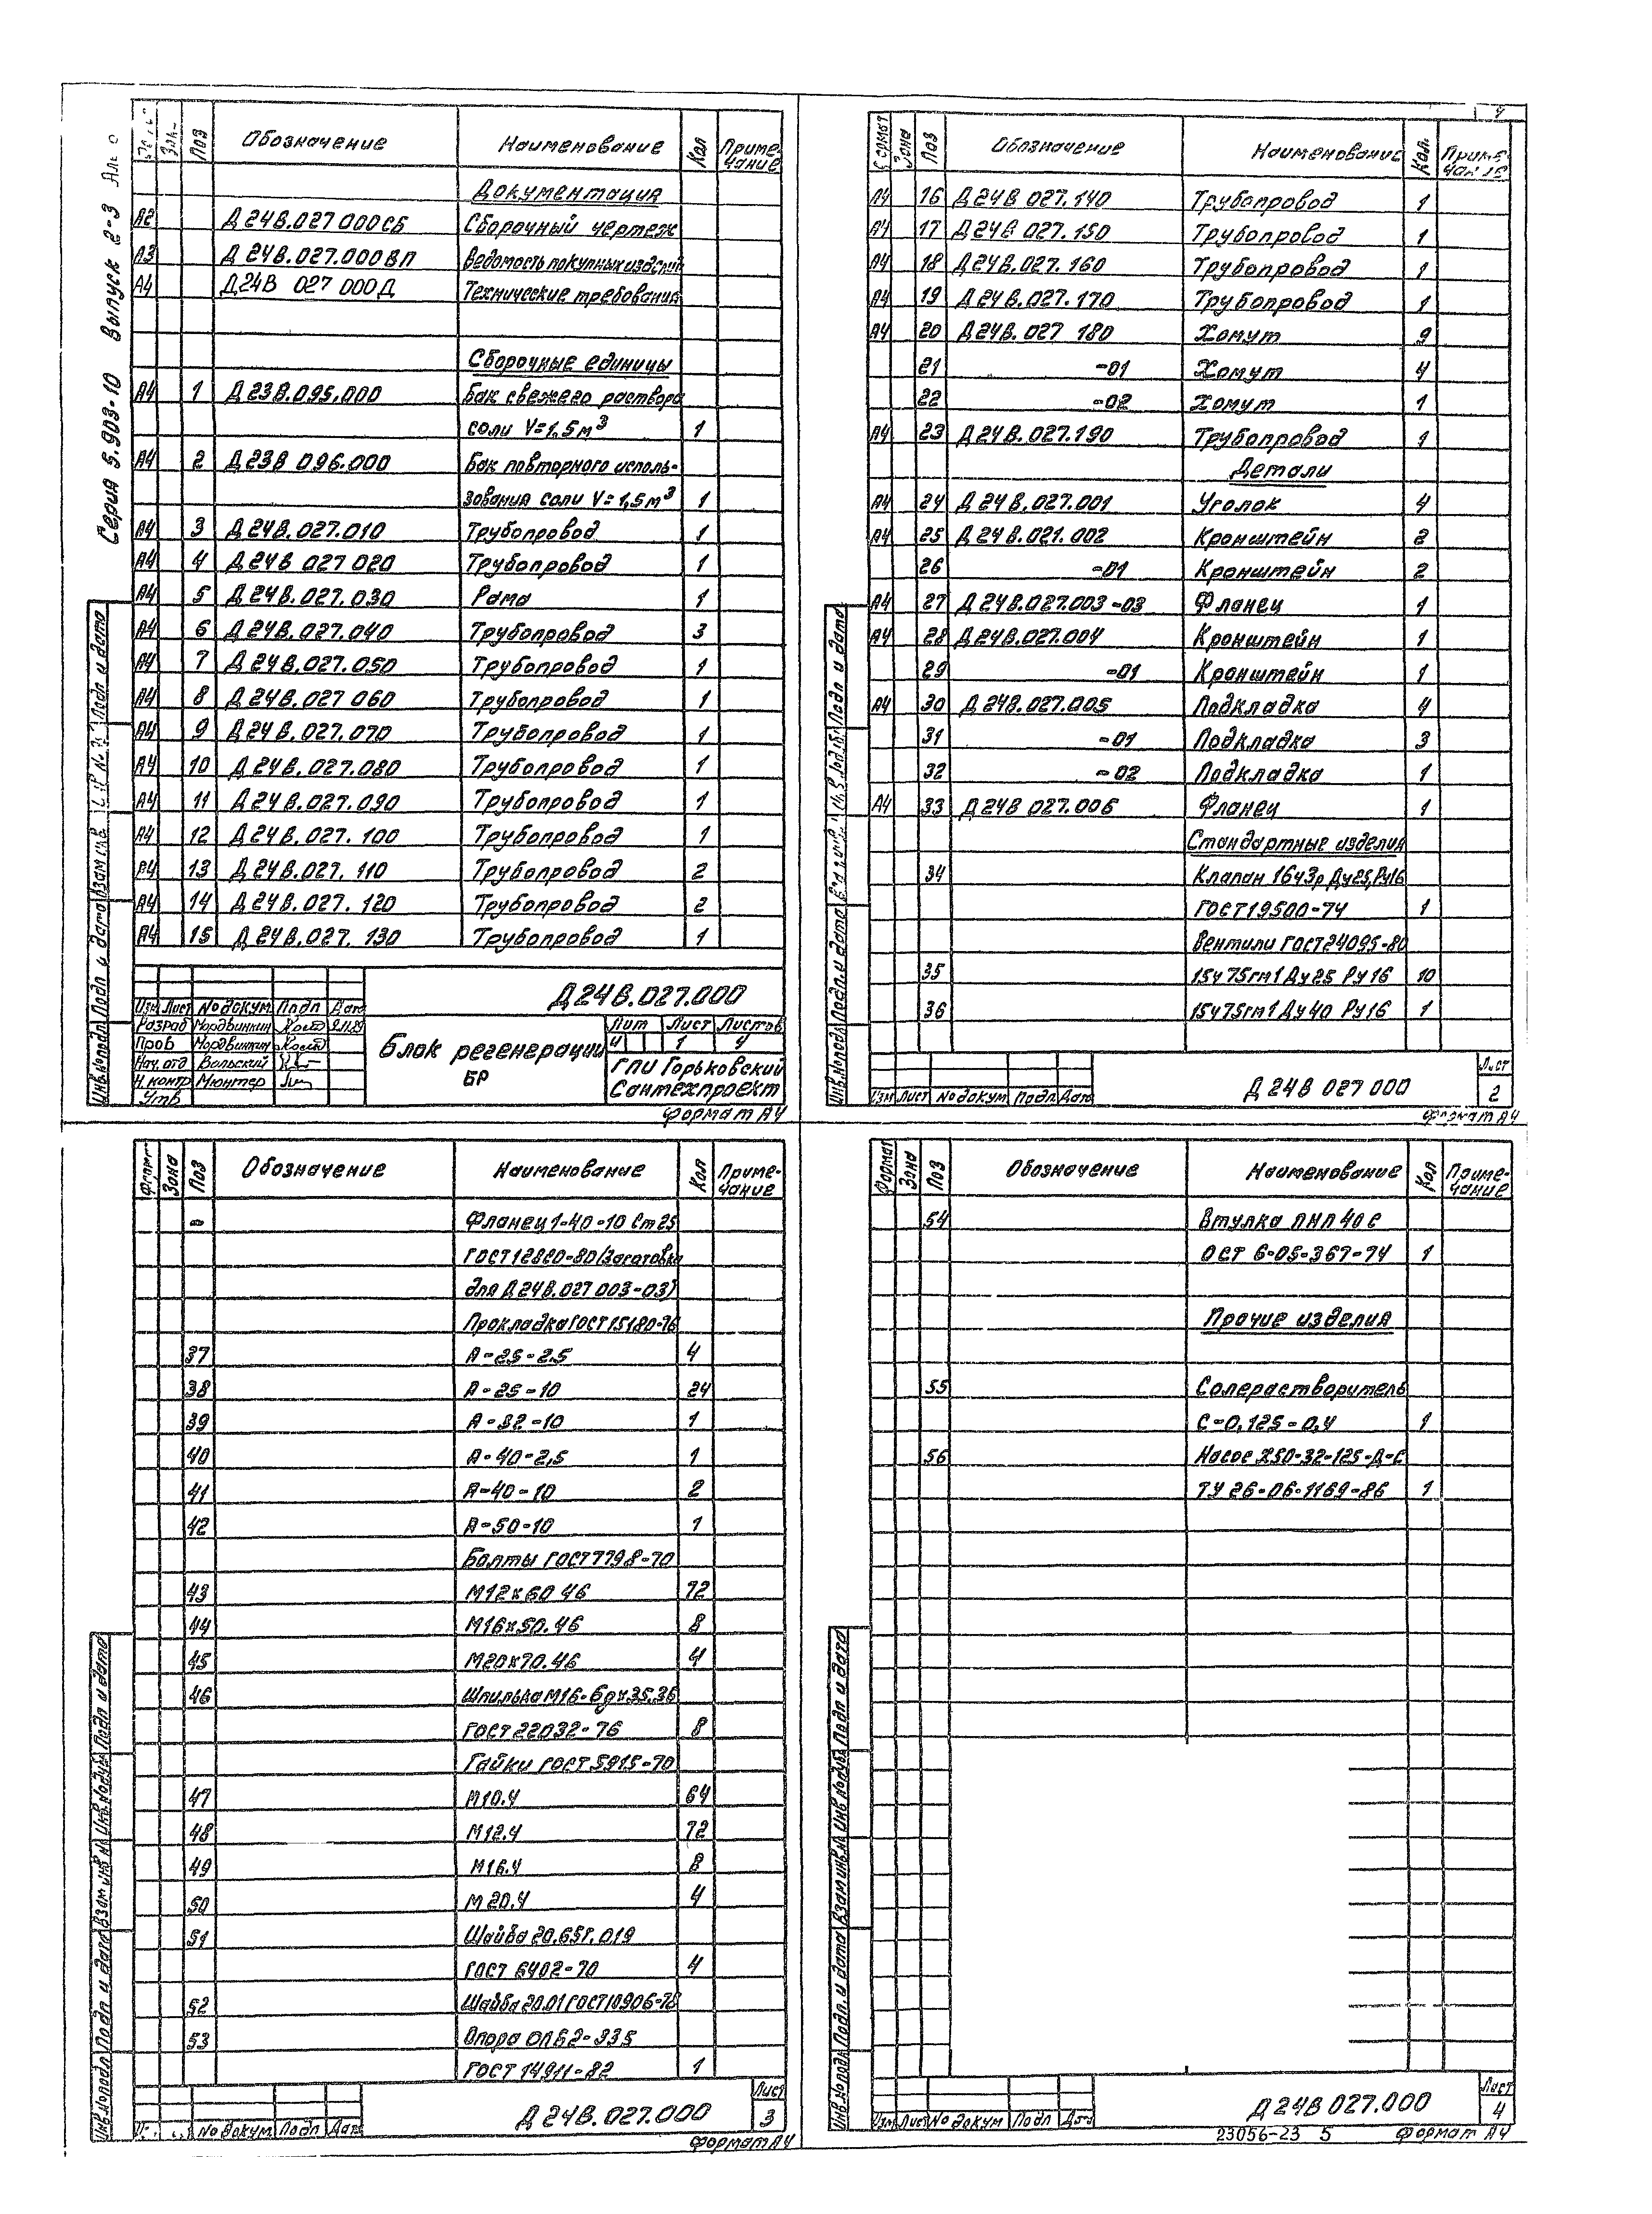 Серия 5.903-10 Выпуск 2-3
Поз Обозначение Наименование Кол Приме-
чание
Документация
А2 Д24В.027 000СБ Сборочный чертеж
А3 Д24В.027.000ВП Ведомость покупных изделий
А4 Д24В 027 000Д Технические требования
Сборочные единицы
А4 1 Д23В.095.000 Бак свежего раствора
соли V=1,5м³ 1
А4 2 Д23В 096.000 Бак повторного исполь-
зования соли V=1,5м³ 1
А4 3 Д24В.027.010 Трубопровод 1
А4 4 Д24В 027 020 Трубопровод 1
А4 5 Д24В.027.030 Рама 1
А4 6 Д24В.027.040 Трубопровод 3
А4 7 Д24В.027.050 Трубопровод 1
А4 8 Д24В.027 060 Трубопровод 1
А4 9 Д24В.027.070 Трубопровод 1
А4 10 Д24В.027.080 Трубопровод 1
А4 11 Д24В.027.090 Трубопровод 1
А4 12 Д24В.027.100 Трубопровод 1
А4 13 Д24В.027.110 Трубопровод 2
А4 14 Д24В.027.120 Трубопровод 2
А4 15 Д24В.027.130 Трубопровод 1
Д24В.027.000
Изм Лист № докум Подп Дата
Разраб Мордвинкин
Пров Мордвинкин
Нач.отд Вольский
Н.контр Мюнтер
Утв
Блок регенерации
БР
Лит Лист Листов
И 1 4
ГПИ Горьковский
Сантехпроект
Формат А4
Инв.№подл Подп и дата Взам Подп и дата
4
Формат Зона Поз Обозначение Наименование Кол. Приме-
чание
А4 16 Д24В 027.140 Трубопровод 1
А4 17 Д24В 027.150 Трубопровод 1
А4 18 Д24В.027.160 Трубопровод 1
А4 19 Д24В.027.170 Трубопровод 1
А4 20 Д24В.027 180 Хомут 9
21 -01 Хомут 4
22 -02 Хомут 1
А4 23 Д24В.027.190 Трубопровод 1
Детали
А4 24 Д24В.027.001 Уголок 4
А4 25 Д24В.021.002 Кронштейн 2
26 -01 Кронштейн 2
А4 27 Д24В.027.003-03 Фланец 1
А4 28 Д24В.027.004 Кронштейн 1
29 -01 Кронштейн 1
А4 30 Д24В.027.005 Подкладка 4
31 -01 Подкладка 3
32 -02 Подкладка 1
А4 33 Д24В 027.006 Фланец 1
Стандартные изделия
34 Клапан 16ч3р Ду25,Ру16
ГОСТ19500-74 1
Вентили ГОСТ24095-80
35 15ч75гм1 Ду25 Ру16 10
36 15ч75гм1 Ду40 Ру16 1
Изм Лист № докум Подп Дата Д24В 027 000 Лист
2
Формат А4
Инв.№подл Подп.и дата Подп и дата
Формат Зона Поз Обозначение Наименование Кол Приме-
чание
- Фланец 1-40-10 Ст25
ГОСТ12820-80/Заготовка
для Д24В.027 003-03)
Прокладка ГОСТ15180-76
37 А-25-2.5 4
38 А-25-10 24
39 А-32-10 1
40 А-40-2,5 1
41 А-40-10 2
42 А-50-10 1
Болты ГОСТ7798-70
43 М12х60 46 72
44 М16х50.46 8
45 М20х70.46 4
46 Шпилька М16-6gх35.36
ГОСТ 22032-76 8
Гайки ГОСТ5915-70
47 М10.4 64
48 М12.4 72
49 М16.4 8
50 М20.4 4
51 Шайба 20.65Г.019
ГОСТ 6402-70 4
52 Шайба 20.01 ГОСТ10906-78
53 Опора ОПБ2-33,5
ГОСТ 14911-82 1
№ докум Подп Дата Д24В.027.000 Лист
3
Формат А4
Инв.№подл Подп и дата Взам инв № Инв.№дубл Подп и дата
Формат Зона Поз Обозначение Наименование Кол Приме-
чание
54 Втулка ПНП 40 С
ОСТ 6-05-367-74 1
Прочие изделия
55 Солерастворитель
С-0,125-0,4 1
56 Насос Х50-32-125-Д-С
ТУ 26-06-1169-86 1
Изм Лист № докум Подп Дата Д24В 027.000 Лист
4
23056-23 5 Формат А4
Инв.№подл Подп.и дата Взам инв.№ Инв №дубл Подп и дата